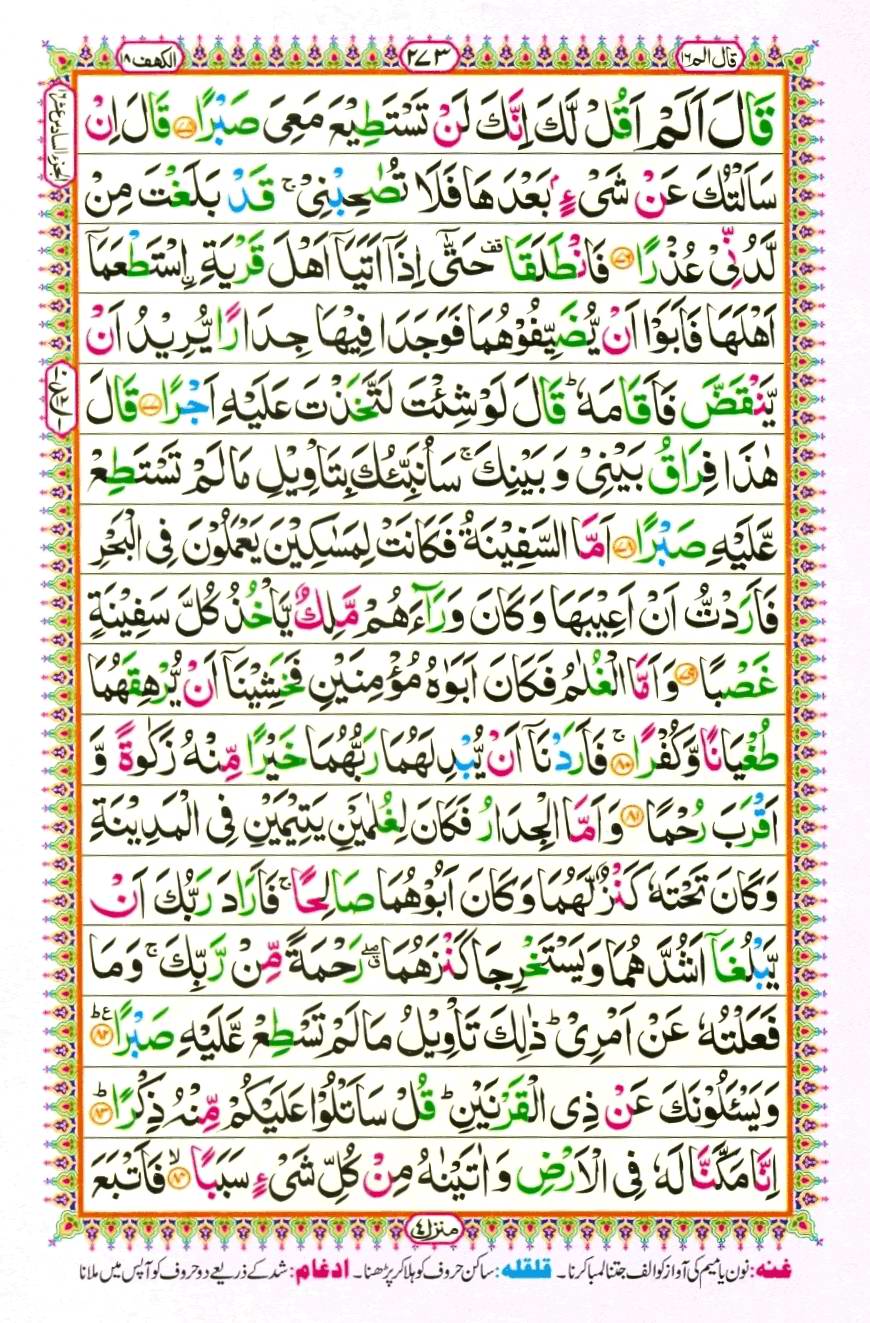 قال الم ١٦
٢٧٣
الكهف ١٨
الجزء السادس عشر ١٦
قَالَ اَلَمْ اَقُلْ لَّكَ اِنَّكَ لَنْ تَسْتَطِيْعَ مَعِىَ صَبْرًا ۝٧٥ قَالَ اِنْ
سَاَلْتُكَ عَنْ شَىْءٍۭ بَعْدَهَا فَلَا تُصٰحِبْنِىْ ۚ قَدْ بَلَغْتَ مِنْ
لَّدُنِّىْ عُذْرًا ۝٧٦ فَانْطَلَقَا ۥقف حَتّٰٓى اِذَاۤ اَتَيَاۤ اَهْلَ قَرْيَةِ ۨاسْتَطْعَمَاۤ
اَهْلَهَا فَاَبَوْا اَنْ يُّضَيِّفُوْهُمَا فَوَجَدَا فِيْهَا جِدَارًا يُّرِيْدُ اَنْ
يَّنْقَضَّ فَاَقَامَهٗ ؕ قَالَ لَوْ شِئْتَ لَتَّخَذْتَ عَلَيْهِ اَجْرًا ۝٧٧ قَالَ
هٰذَا فِرَاقُ بَيْنِىْ وَ بَيْنِكَ ۚ سَاُنَبِّئُكَ بِتَاْوِيْلِ مَا لَمْ تَسْتَطِعْ
عَّلَيْهِ صَبْرًا ۝٧٨ اَمَّا السَّفِيْنَةُ فَكَانَتْ لِمَسٰكِيْنَ يَعْمَلُوْنَ فِى الْبَحْرِ
فَاَرَدْتُّ اَنْ اَعِيْبَهَا وَكَانَ وَرَآءَهُمْ مَّلِكٌ يَّاْخُذُ كُلَّ سَفِيْنَةٍ
غَصْبًا ۝٧٩ وَ اَمَّا الْغُلٰمُ فَكَانَ اَبَوٰهُ مُؤْمِنَيْنِ فَخَشِيْنَاۤ اَنْ يُّرْهِقَهُمَا
طُغْيَانًا وَّكُفْرًا ۚ‏ ۝٨٠ فَاَرَدْنَاۤ اَنْ يُّبْدِلَهُمَا رَبُّهُمَا خَيْرًا مِّنْهُ زَكٰوةً وَّ
اَقْرَبَ رُحْمًا ۝٨١ وَ اَمَّا الْجِدَارُ فَكَانَ لِغُلٰمَيْنِ يَتِيْمَيْنِ فِى الْمَدِيْنَةِ
وَكَانَ تَحْتَهٗ كَنْزٌ لَّهُمَا وَكَانَ اَبُوْهُمَا صَالِحًا ۚ فَاَرَادَ رَبُّكَ اَنْ
يَّبْلُغَاۤ اَشُدَّهُمَا وَيَسْتَخْرِجَا كَنْزَهُمَا ۖق رَحْمَةً مِّنْ رَّبِّكَ ۚ وَمَا
فَعَلْتُهٗ عَنْ اَمْرِىْ ؕ ذٰلِكَ تَاْوِيْلُ مَا لَمْ تَسْطِعْ عَّلَيْهِ صَبْرًا ؕع ۝٨٢
وَيَسْـَٔلُوْنَكَ عَنْ ذِى الْقَرْنَيْنِ ؕ قُلْ سَاَتْلُوْا عَلَيْكُمْ مِّنْهُ ذِكْرًا ؕ ۝٨٣
اِنَّا مَكَّنَّا لَهٗ فِى الْاَرْضِ وَ اٰتَيْنٰهُ مِنْ كُلِّ شَىْءٍ سَبَبًا ۙ ۝٨٤ فَاَتْبَعَ
منزل ٤
غنه: نون یا میم کی آواز کو الف جتنا لمبا کرنا۔ قلقله: ساکن حروف کو ہلا کر پڑھنا۔ ادغام: شد کے ذریعے دو حروف کو آپس میں ملانا